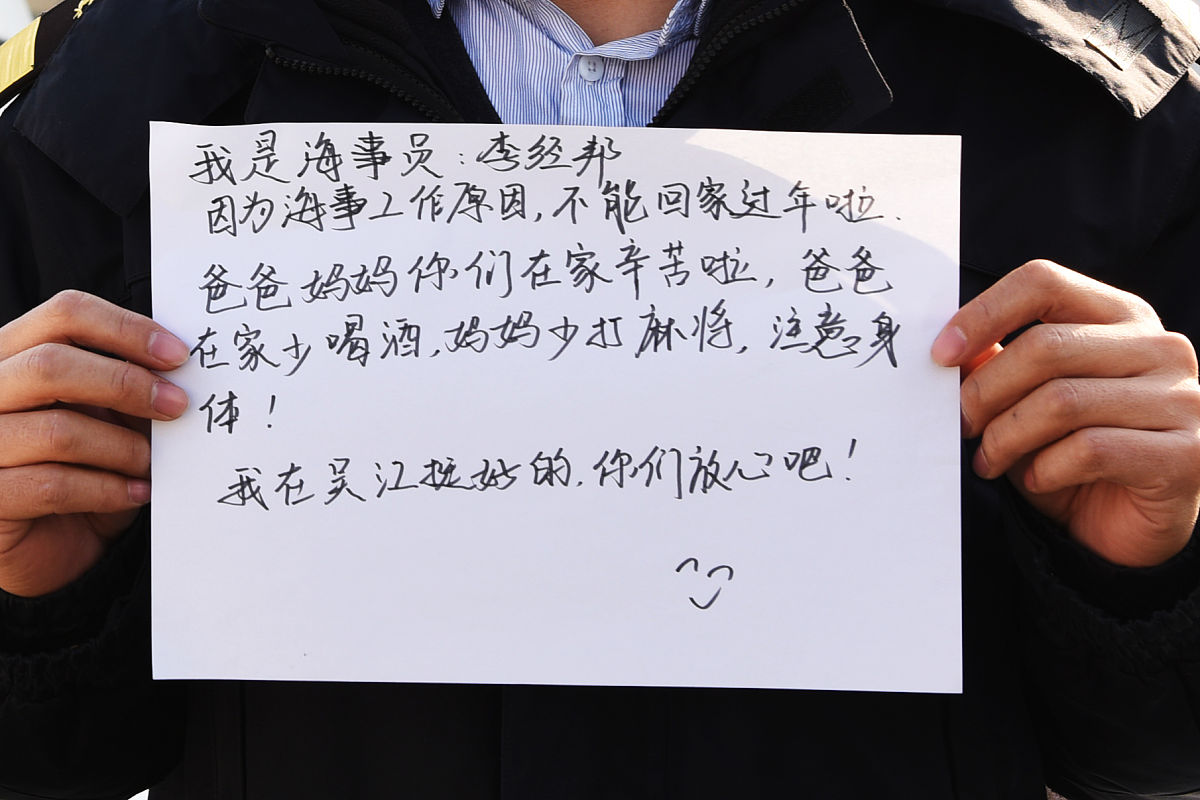 我是海事员:李经邦
因为海事工作原因,不能回家过年啦.
爸爸妈妈你们在家辛苦啦,爸爸
在家少喝酒,妈妈少打麻将,注意身
体!
我在吴江挺好的.你们放心吧!